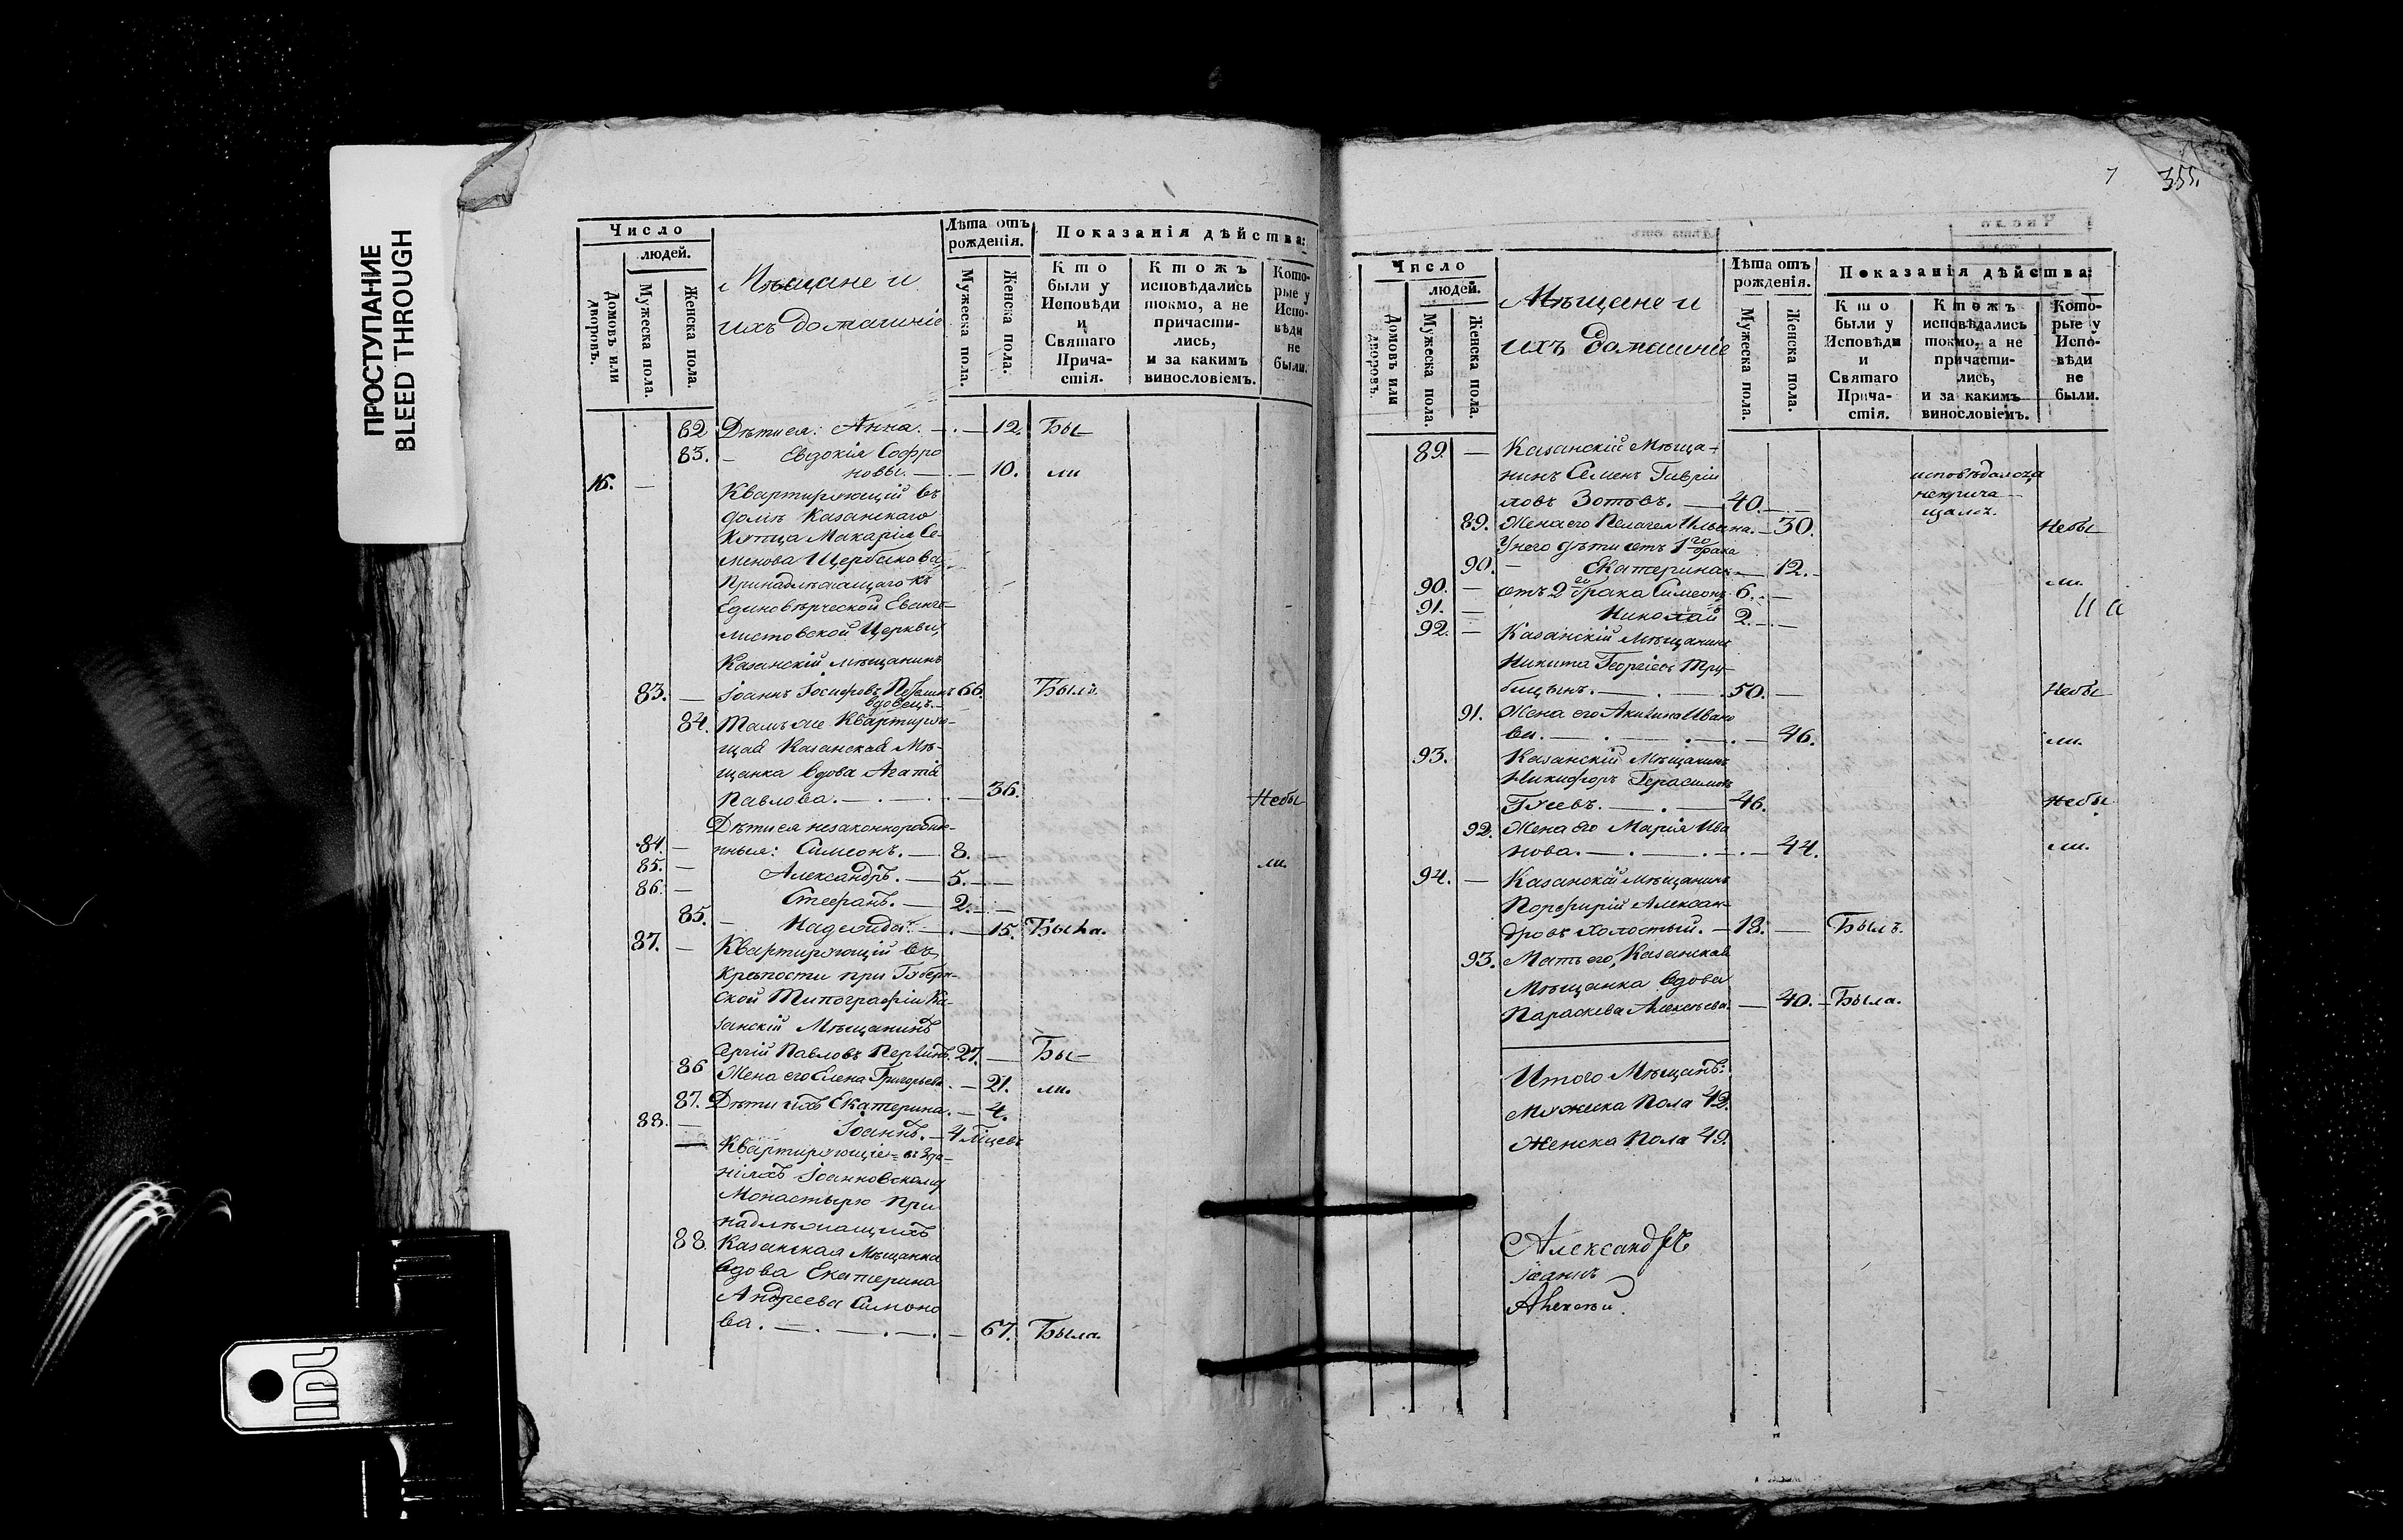 ПРОСТУПАНИЕ
BLEED THROUGH
IDL
Число
людей.
Домовъ или дворовъ.
Мужеска пола.
Женска пола.
Мѣщане и
ихъ домашніе
Лѣта отъ рожденія.
Мужеска пола.
Женска пола.
Показанія дѣйства:
Кто были у Исповѣди и Святаго Прича- стія.
Ктожъ исповѣдались токмо, а не причасти- лись, и за какимъ винословіемъ.
Кото- рые у Испо- вѣди не были.
82 Дѣти ея: Анна. — 12. Бы-
83. — Евдокія Софро
новы. — 10. ли
16. — Квартирующій въ
домѣ Казанскаго
Купца Макарія Се-
менова Щербакова,
Принадлежащаго къ
Единовѣрческой Еванге-
листовской Церкви,
Казанскій мѣщанинъ
83. — Іоаннъ Іосифовъ 66. Былъ.
вдовецъ.
84. Тамъ же Квартирую-
щая Казанская Мѣ-
щанка вдова Агатія
Павлова. — 36. Небы
Дѣти ея незаконнорожден-
84. — ныя: Симеонъ. — 8. —
85. — Александръ. — 5. — ли.
86. — Стефанъ. — 2. —
85. — Надежда. — 15. Была.
87. — Квартирующій въ
крѣпости при Губерн-
ской Типографіи Ка-
занскій Мѣщанинъ
Сергій Павловъ 27. — Бы-
86 Жена его Елена Григорьева. — 21. ли.
87. Дѣти ихъ Екатерина. — 4.
88. — Іоаннъ. — 4
Квартирующіе въ зда-
ніяхъ Іоанновскому
Монастырю При
надлежащихъ
88. Казанская Мѣщанка
вдова Екатерина
Андреева Симоно
ва. — 67. Была.
7 355.
Число
людей.
Домовъ или дворовъ.
Мужеска пола.
Женска пола.
Мѣщане и
ихъ домашніе
Лѣта отъ рожденія.
Мужеска пола.
Женска пола.
Показанія дѣйства:
Кто были у Исповѣди и Святаго Прича- стія.
Ктожъ исповѣдались токмо, а не причасти- лись, и за какимъ винословіемъ.
Кото- рые у Испо- вѣди не были.
89. — Казанскій Мѣща-
нинъ Семенъ Гаврiи
ловъ Зотовъ. — 40. — исповѣдался, непричащался.
89. Жена его Пелагея Ильина. — 30. Небы
У него дѣти отъ 1го брака
90. — Екатерина. — 12. —
90. — отъ 2го брака Симеонъ 6. — ли.
91. — Николай 2. —
92. — Казанскій мѣщанинъ
Никита Георгіевъ Тру-
бицынъ. — 50. — Небы
91. Жена его Акилина Ивано
ва. — 46. ли.
93. Казанскій Мѣщанинъ
Никифоръ Герасимовъ
Гусевъ. — 46. Небы
92. Жена его Марія Ива
нова. — 44. ли.
94. — Казанскій мѣщанинъ
Порфирій Алексан-
дровъ холостый. — 18. — Былъ.
93. Мать его, Казанская
Мѣщанка вдова
Параскева Алексѣева. — 40. — Была.
Итого Мѣщанъ:
Мужеска Пола 42.
Женска Пола 49.
Александръ
Іоаннъ
Алексѣй.